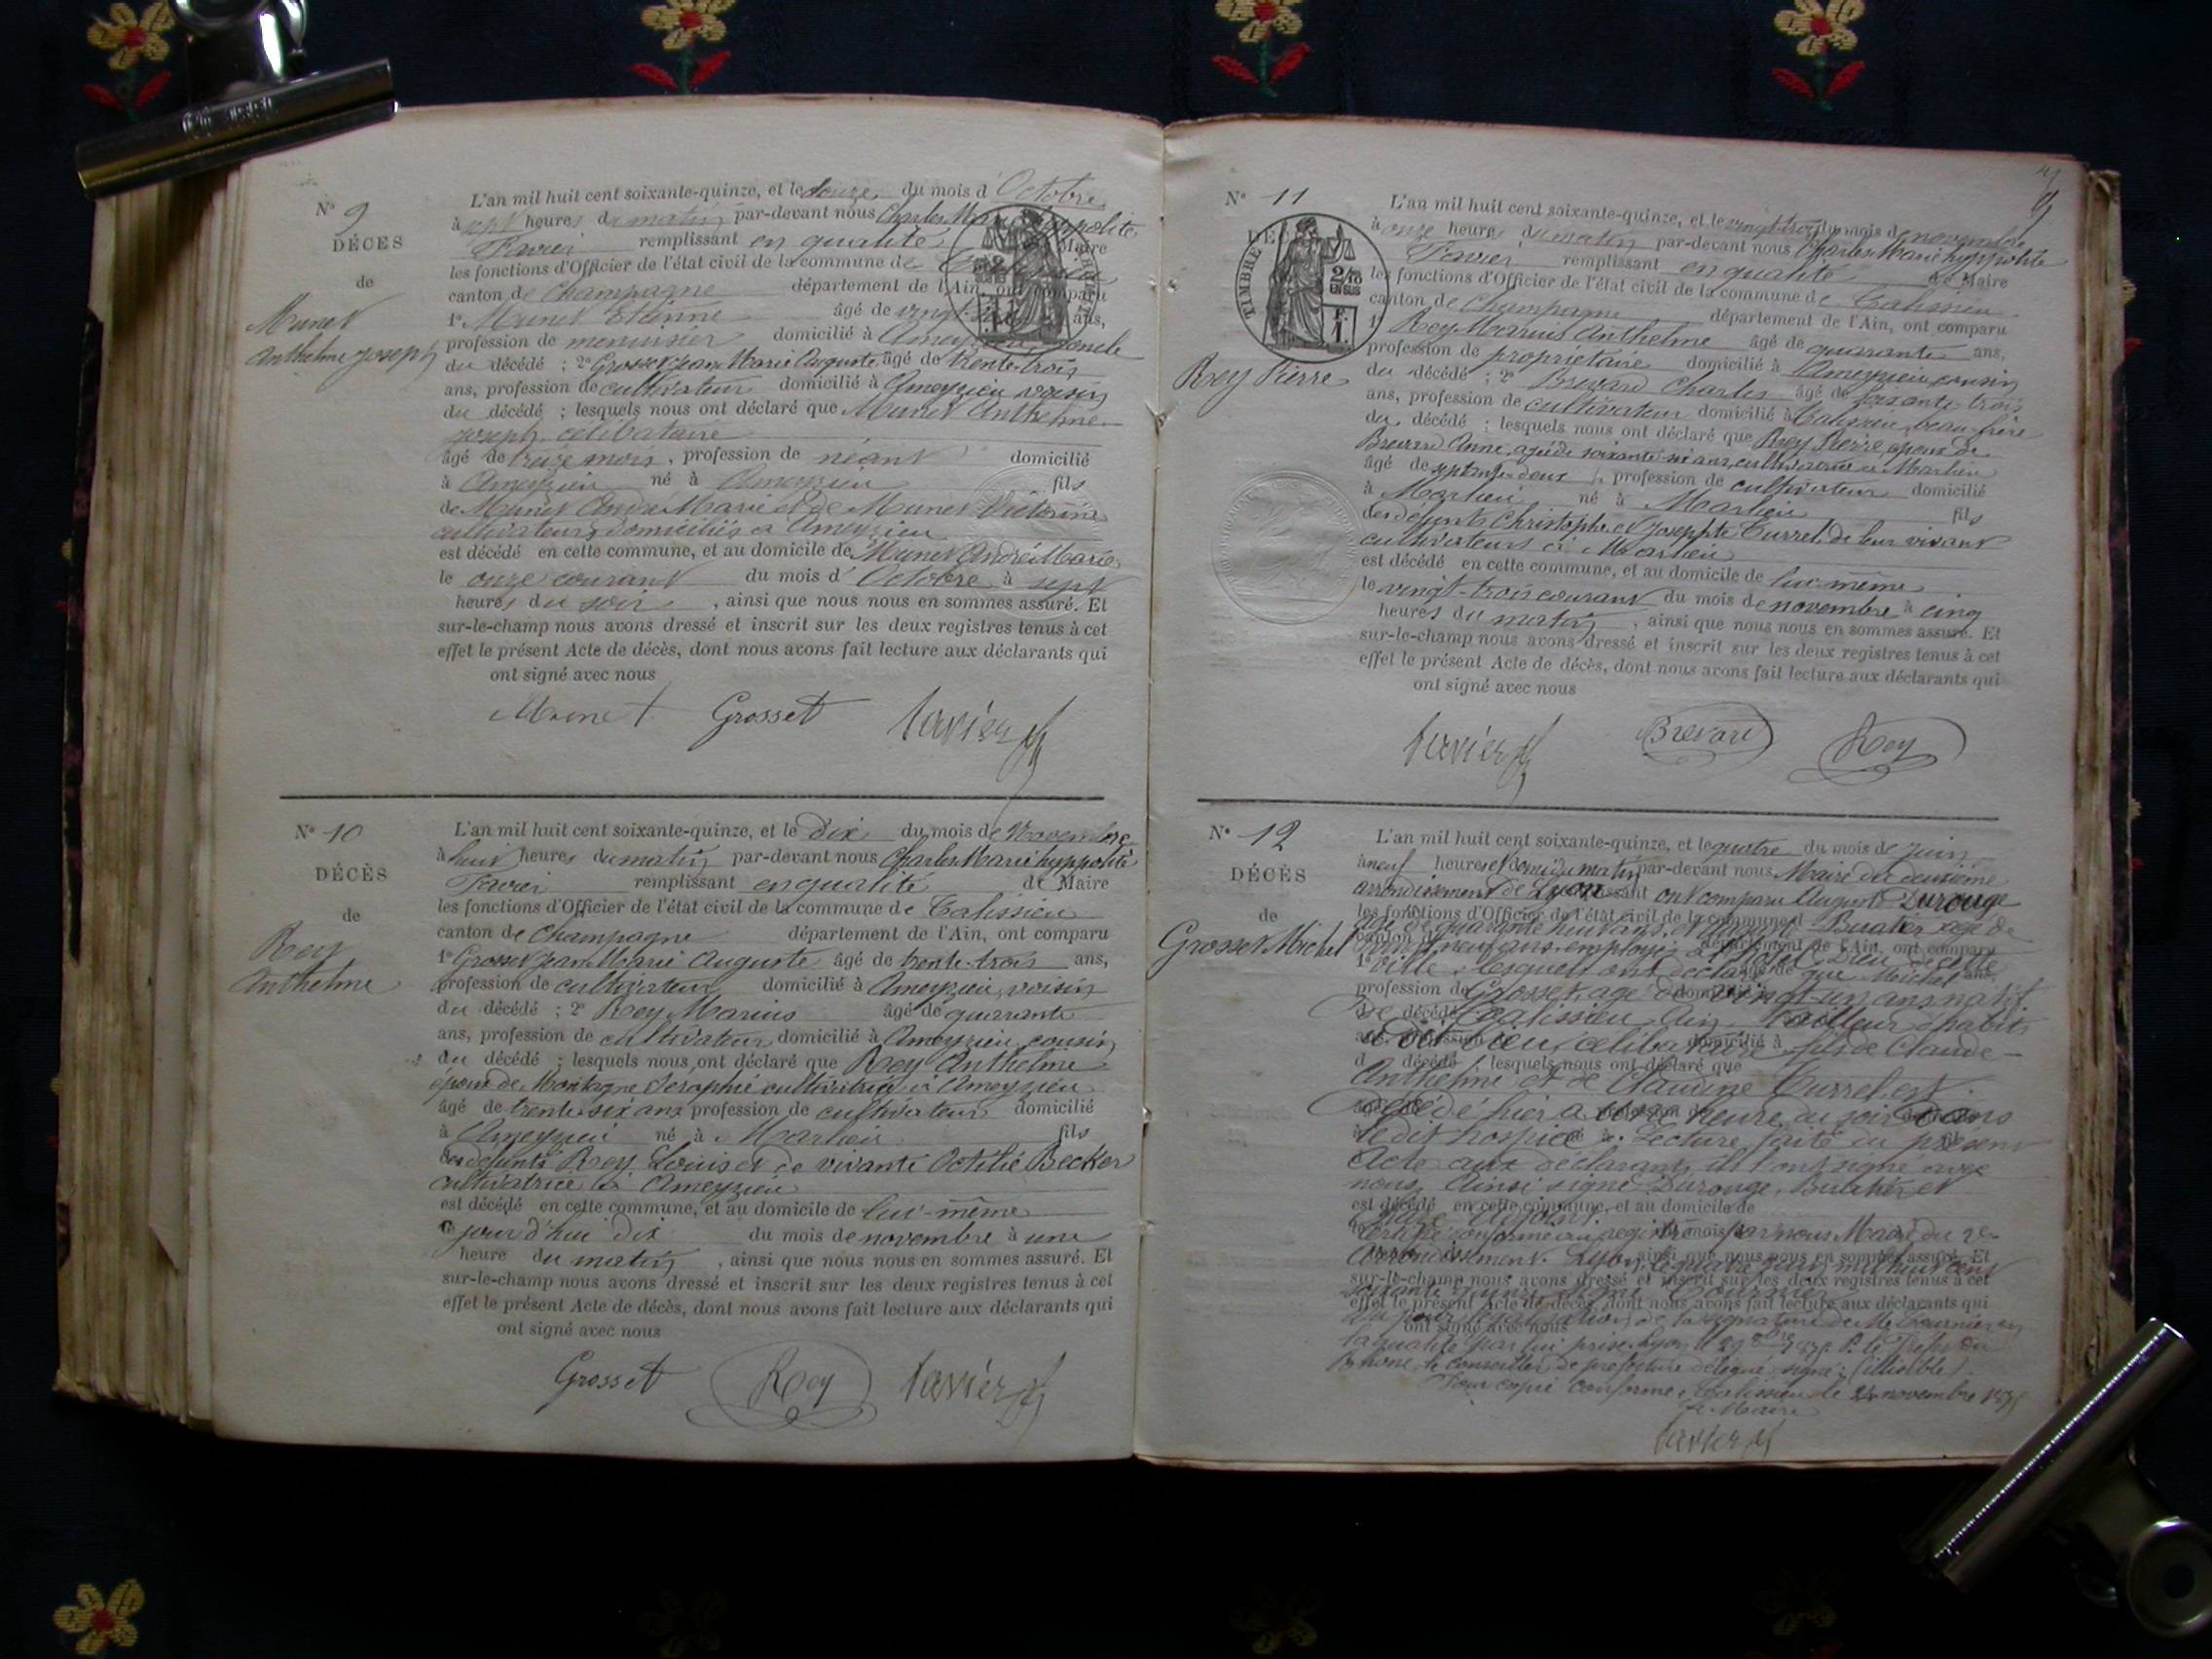 N° 9
DÉCES
de
Munet
Anthelme joseph
L'an mil huit cent soixante-quinze, et le douze du mois d'Octobre
à sept heures du matin par-devant nous Charles Marie hyppolite
Favier remplissant en qualité Maire
les fonctions d'Officier de l'état civil de la commune de
canton de Champagne département de l'Ain, ont comparu
1° Munet Etienne âgé de vingt ans,
profession de menuisier domicilié à oncle
du décédé ; 2° Grosset jean Marie Auguste âgé de trente-trois
ans, profession de cultivateur domicilié à Ameyzieu voisin
du décédé ; lesquels nous ont déclaré que Munet Anthelme
joseph célibataire
âgé de treize mois, profession de néant domicilié
à Ameyzieu né à Ameyzieu fils
de Munet André Marie et de Munet Victorine
cultivateurs domiciliés à Ameyzieu
est décédé en cette commune, et au domicile de Munet André Marie
le onze courant du mois d'Octobre à sept
heures du soir, ainsi que nous nous en sommes assuré. Et
sur-le-champ nous avons dressé et inscrit sur les deux registres tenus à cet
effet le présent Acte de décès, dont nous avons fait lecture aux déclarants qui
ont signé avec nous
Munet Grosset favier
N° 10
DÉCÈS
de
Rey
Anthelme
L'an mil huit cent soixante-quinze, et le dix du mois de Novembre
à huit heures du matin par-devant nous Charles Marie hyppolite
Favier remplissant en qualité de Maire
les fonctions d'Officier de l'état civil de la commune de Talissieu
canton de Champagne département de l'Ain, ont comparu
1° Grosset jean Marie Auguste âgé de trente-trois ans,
profession de cultivateur domicilié à Ameyzieu voisin
du décédé ; 2° Rey Marius âgé de quarante
ans, profession de cultivateur domicilié à Ameyzieu cousin
du décédé ; lesquels nous ont déclaré que Rey Anthelme
époux de Montagne Seraphie cultivatrice à Ameyzieu
âgé de trente-six ans profession de cultivateur domicilié
à Ameyzieu né à Marlieu fils
des défunts Rey Louis et de vivante Octilié Becker
cultivatrice à Ameyzieu
est décédé en cette commune, et au domicile de lui-même
jourd'hui dix du mois de novembre à une
heure du matin, ainsi que nous nous en sommes assuré. Et
sur-le-champ nous avons dressé et inscrit sur les deux registres tenus à cet
effet le présent Acte de décès, dont nous avons fait lecture aux déclarants qui
ont signé avec nous
Grosset Rey favier
9
N° 11
DÉC
TIMBRE
2/10
EN SUS
F.
1.
Rey Pierre
L'an mil huit cent soixante-quinze, et le vingt-trois du mois de novembre
à onze heures du matin par-devant nous Charles Marie hyppolite
Favier remplissant en qualité de Maire
les fonctions d'Officier de l'état civil de la commune de Talissieu
canton de Champagne département de l'Ain, ont comparu
1° Rey Marius Anthelme âgé de quarante ans,
profession de propriétaire domicilié à Ameyzieu cousin
du décédé ; 2° Brevard Charles âgé de soixante-trois
ans, profession de cultivateur domicilié à Talissieu beau-frère
du décédé ; lesquels nous ont déclaré que Rey Pierre époux de
Brevard Anne, agée de soixante six ans, cultivatrice à Marlieu
âgé de septante-deux, profession de cultivateur domicilié
à Marlieu né à Marlieu fils
des défunts Christophe et Josephte Turrel, de leur vivant
cultivateurs à Marlieu
est décédé en cette commune, et au domicile de lui-même
le vingt-trois courant du mois de novembre à cinq
heures du matin, ainsi que nous nous en sommes assuré. Et
sur-le-champ nous avons dressé et inscrit sur les deux registres tenus à cet
effet le présent Acte de décès, dont nous avons fait lecture aux déclarants qui
ont signé avec nous
favier Brevard Rey
N° 12
DÉCÈS
de
Grosset Michel
L'an mil huit cent soixante-quinze, et le quatre du mois de juin
à neuf heures et demi du matin par-devant nous Maire du deuxième
arrondissement de Lyon ont comparu Auguste Durouge
âgé de quarante huit ans, et Buatier âgé de
neuf ans, employés à l'Hôtel Dieu de cette
ville, lesquels ont déclaré que Michel
Grosset, agé de vingt-un ans natif
de Talissieu, Ain, tailleur d'habits
célibataire fils de Claude-
Anthelme et de Claudine Turrel, est
décédé hier à heure du soir dans
ledit hospice. Lecture faite du présent
acte aux déclarants, ils l'ont signé avec
nous. Ainsi signé Durouge, Buatier et
Certifié conforme au registre par nous Maire du 2e
arrondissement. Lyon, le quatre juin mil huit cent
soixante quinze signé Tournier
Vu pour légalisation de la signature de Mr Tournier en
la qualité par lui prise. Lyon, le P. le Préfet du
Rhône, le conseiller de préfecture délégué, signé : (illisible).
Pour copie conforme, Talissieu le 24 novembre 1875
Le Maire
favier